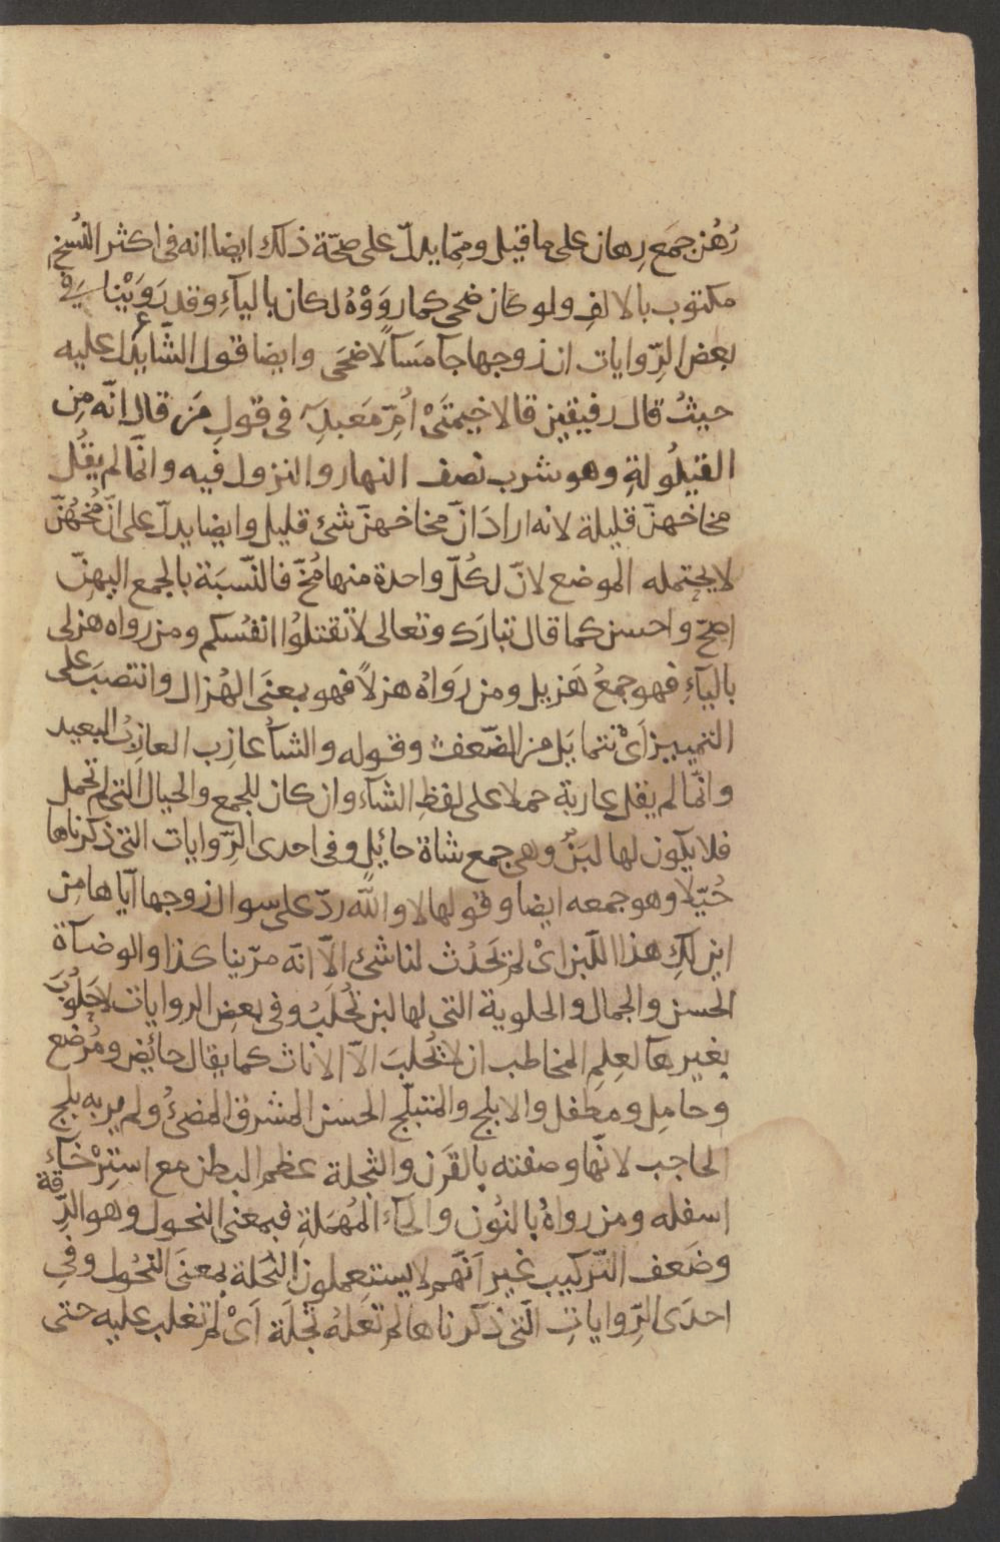 رُهُن جمَع رِهان على ما قيل وممّا يدلّ على صحّة ذلك ايضا انه فى اكثر النُسخ
مكتوب بالالفِ ولو كان ضحى كما روَوْهُ لكان بالياءِ وقد رَوَيْنا فى
بعض الرِّوايات ان زوجها جآ مَسآلًا ضحَى وايضا قول الشّاعر يدل عليه
حيثُ قال رفيقين قالا خيمتَىْ اُمِّ مَعبدِ فى قولِ مَن قال انّه مِن
القيلُولةِ وهو شرب نصف النهار والنزول فيه وانّما لم يقُل
مخاخهنّ قليلة لانه ارادَ انّ مخاخهنّ شئ قليل وايضا يدلّ على انّ مُخهُنّ
لا يحتمله الموضع لانّ لكُلّ واحدة منها مُخّ فالنّسبَة بالجمع اليهنّ
اصحّ واحسن كما قال تبارَك وتعالى لا تقتلُوا انفُسكم ومن رواه هزلى
بالياءِ فهو جمعُ هَزيل ومن رَوَاهُ هزلاً فهو بمعنَى الهُزال وانتصبَ على
التمييز اَىْ تتمايَل من الضّعف وقوله والشآءُ عازِب العازِبُ البعيد
وانّما لم يقل عازبة حملا على لفظِ الشآء وان كان للجمع والحيال التى لم تحمل
فلا يكون لها لبَنٌ وهى جمع شاة حائِل وفى احدى الرِّوايات التى ذكرناها
حُيّلا وهو جمعه ايضا وقولها لا والله ردّ على سوال زوجها ايّاها مِن
اين لكِ هذا اللّبن اىْ لم يَحدُث لنا شئ الّا انّه مرّ بنا كذا والوضآة
الحسن والجمال والحلوبة التى لها لبن تُحلَبُ وفى بعض الروايات لا حَلُوبَ
بغير هآ لعِلمِ المخاطب ان لا تُحلَبَ الّا الاناث كما يقال حائِض ومُرضع
وحامِل ومطفل والابلج والمتبلّج الحسن المشرق المضئُ ولم يرد به بلج
الحاجب لانّها وصفته بالقَرَن والثجلة عظم البطن مع استِرْخآء
اسفله ومن رواهُ بالنُون والحآء المُهمَلةِ فبمعنى النحول وهو الدِّقة
وضَعف التّركيب غير اَنّهم لا يستعملون النُحلة بمعنَى النحُول وفى
احدَى الرِّوايات الّتى ذكرناها لم تَعلهُ ثجلَة اَىْ لم تغلب عليه حتى